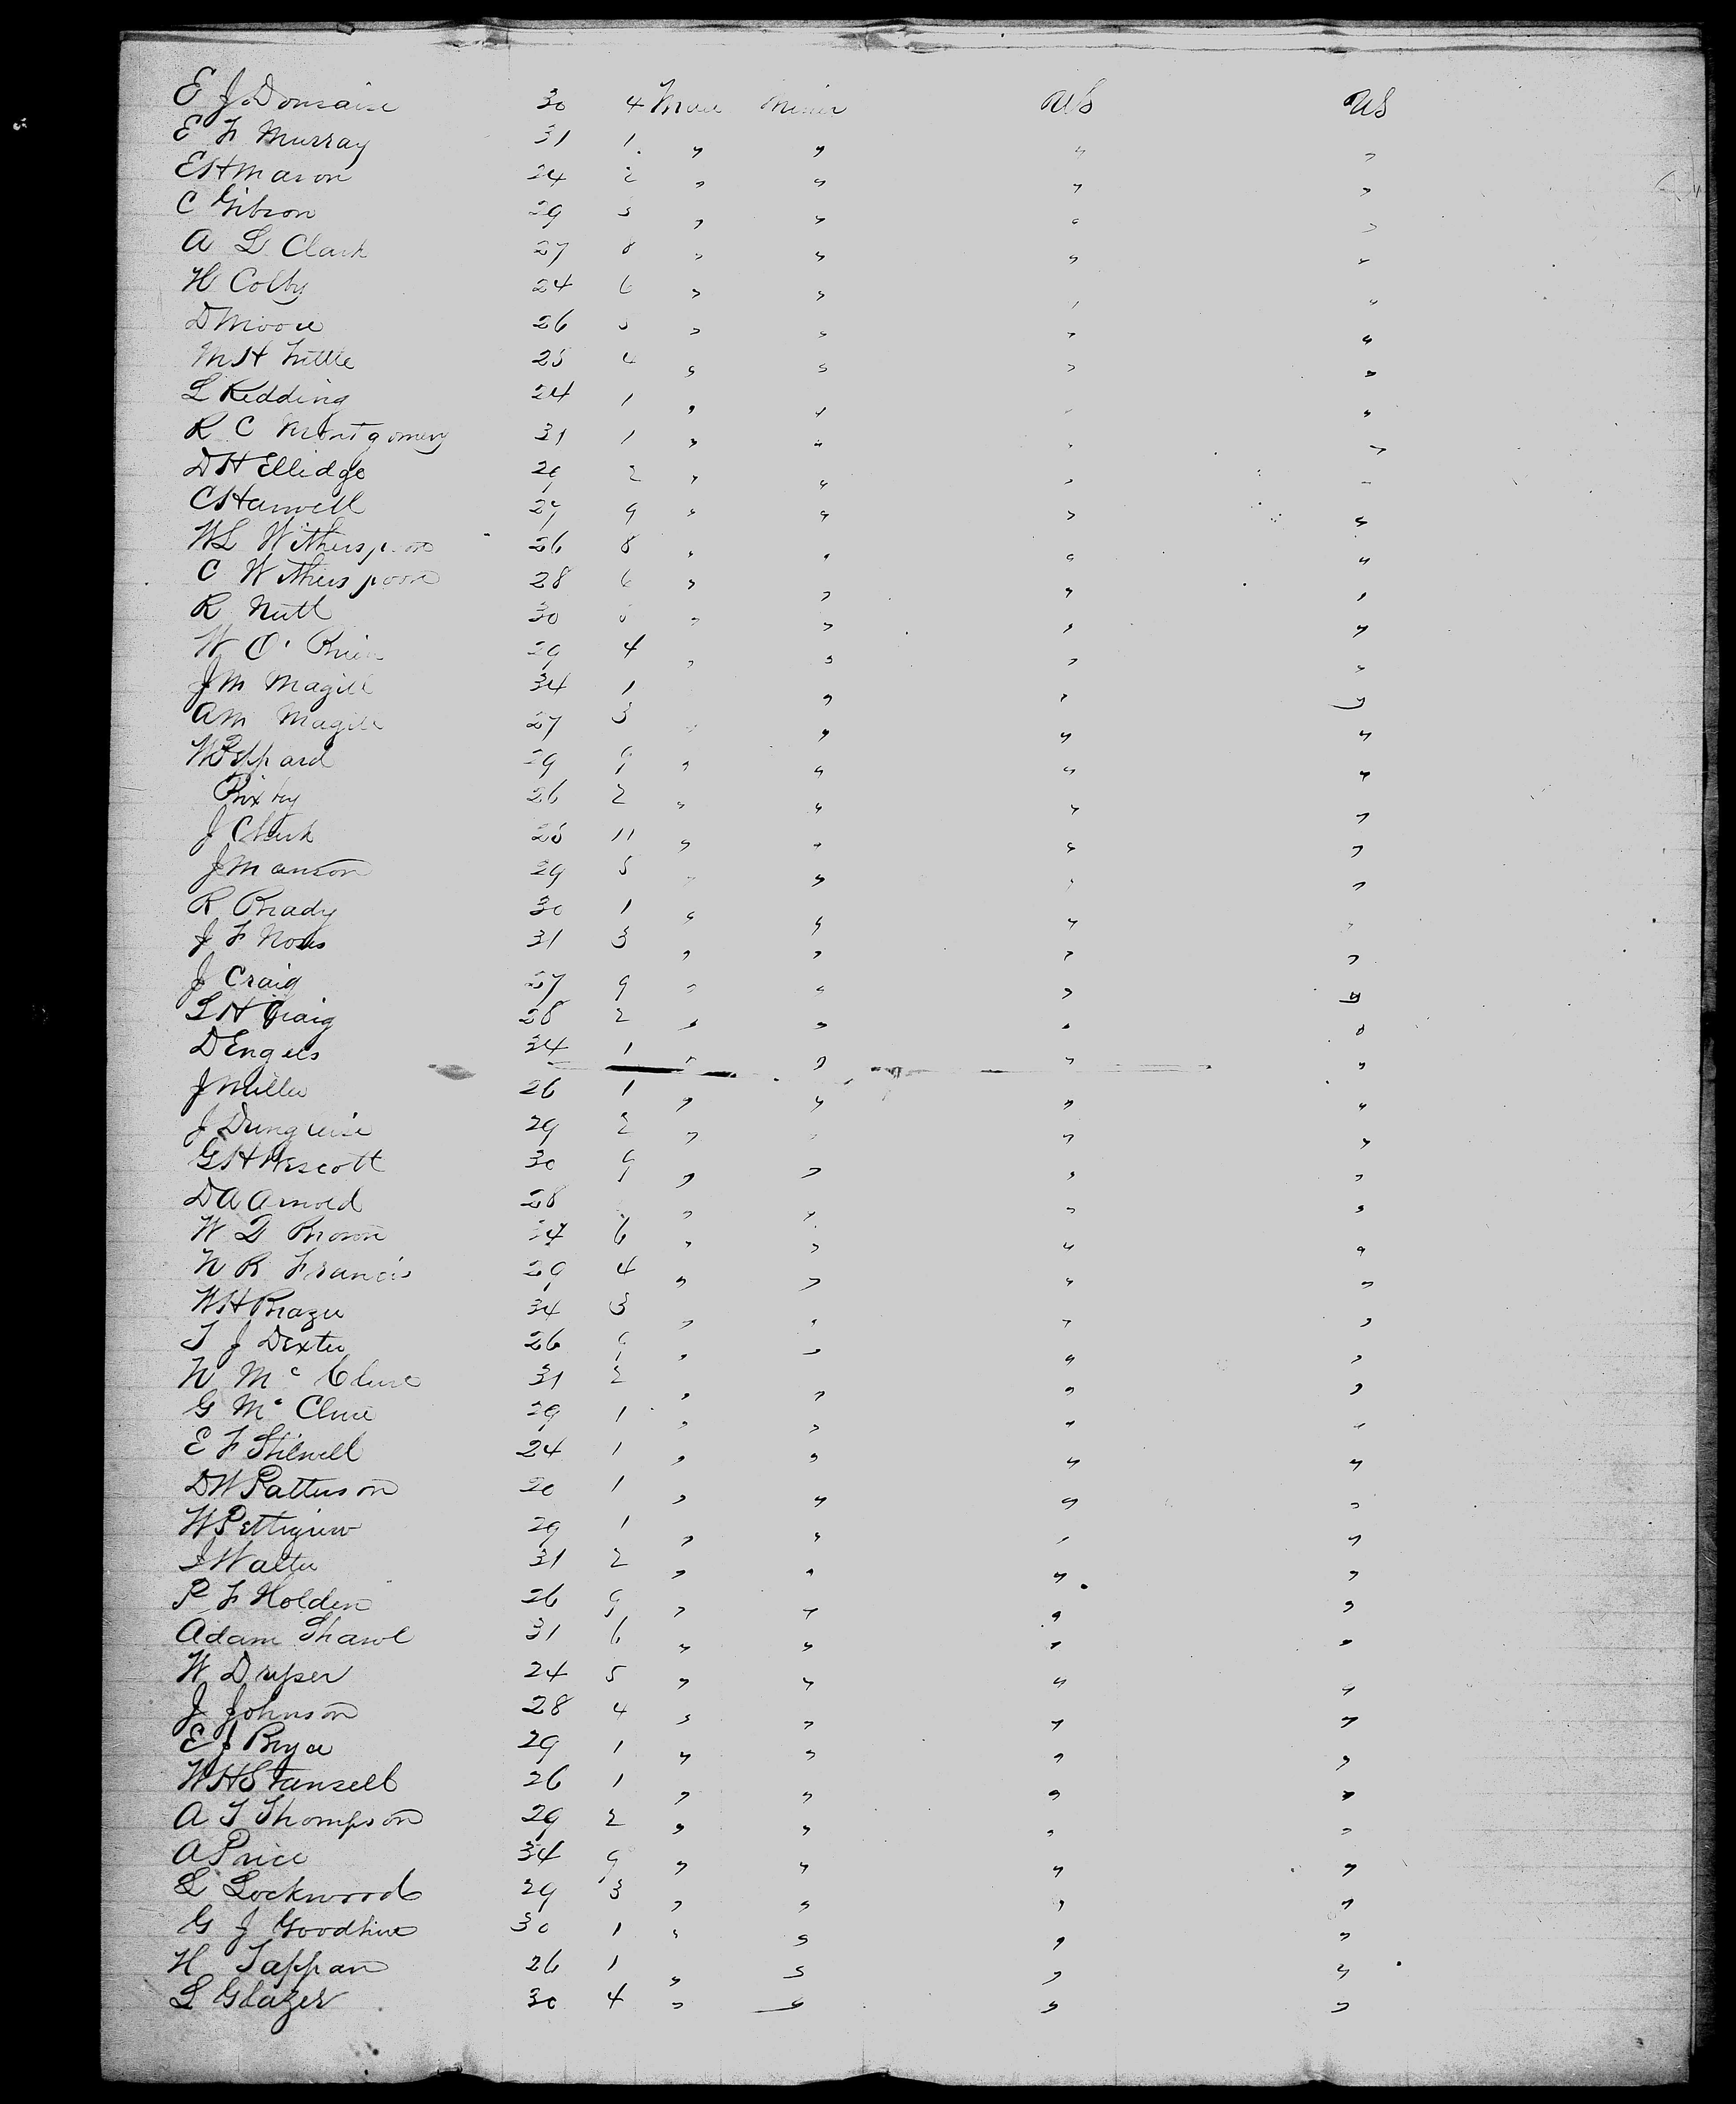 E J Donsaise 30 4 Male Miner US US
E F Murray 31 1 " " " "
E H Mason 24 2 " " " "
C Gibson 29 3 " " " "
A L Clark 27 8 " " " "
H Colby 24 6 " " " "
D Moore 26 5 " " " "
M H Little 25 4 " " " "
L Redding 24 1 " " " "
R C Montgomery 31 1 " " " "
D H Ellidge 29 2 " " " "
C Harwell 27 9 " " " "
W L Witherspoon 26 8 " " " "
C Witherspoon 28 6 " " " "
R Nutt 30 " " " "
W O' Brien 29 4 " " " "
J M Magill 34 1 " " "
A M Magill 27 3 " " " "
W Eppard 29 9 " " " "
Bixby 26 2 " " " "
J Clark 25 11 " " " "
J Manson 29 5 " " " "
R Brady 30 1 " " " "
J F Noris 31 3 " " " "
J Craig 27 9 " " " "
L H Craig 28 2 " " " "
D Engels 34 1 " " " "
J Miller 26 1 " " " "
J 29 2 " " " "
G H Wescott 30 9 " " " "
D A Arnold 28 " " " "
W D Brown 34 6 " " " "
N R Francis 29 4 " " " "
W H Brazer 34 3 " " " "
T J Dexter 26 9 " " " "
N Mc Clure 31 2 " " " "
G Mc Clure 29 1 " " " "
E F Stilwell 24 1 " " " "
D W Patterson 20 1 " " " "
W Pettigrew 29 1 " " " "
J Walter 31 2 " " " "
P F Holden 26 9 " " " "
Adam Shawl 31 6 " " " "
W Dryser 24 5 " " " "
J Johnson 28 4 " " " "
E J Bryce 29 1 " " " "
W H Stansell 26 1 " " " "
A T Thompson 29 2 " " " "
A Price 34 9 " " " "
L Lockwood 29 3 " " " "
G J Goodhue 30 1 " " " "
H Tappan 26 1 " " " "
L Glazer 30 4 " " " "